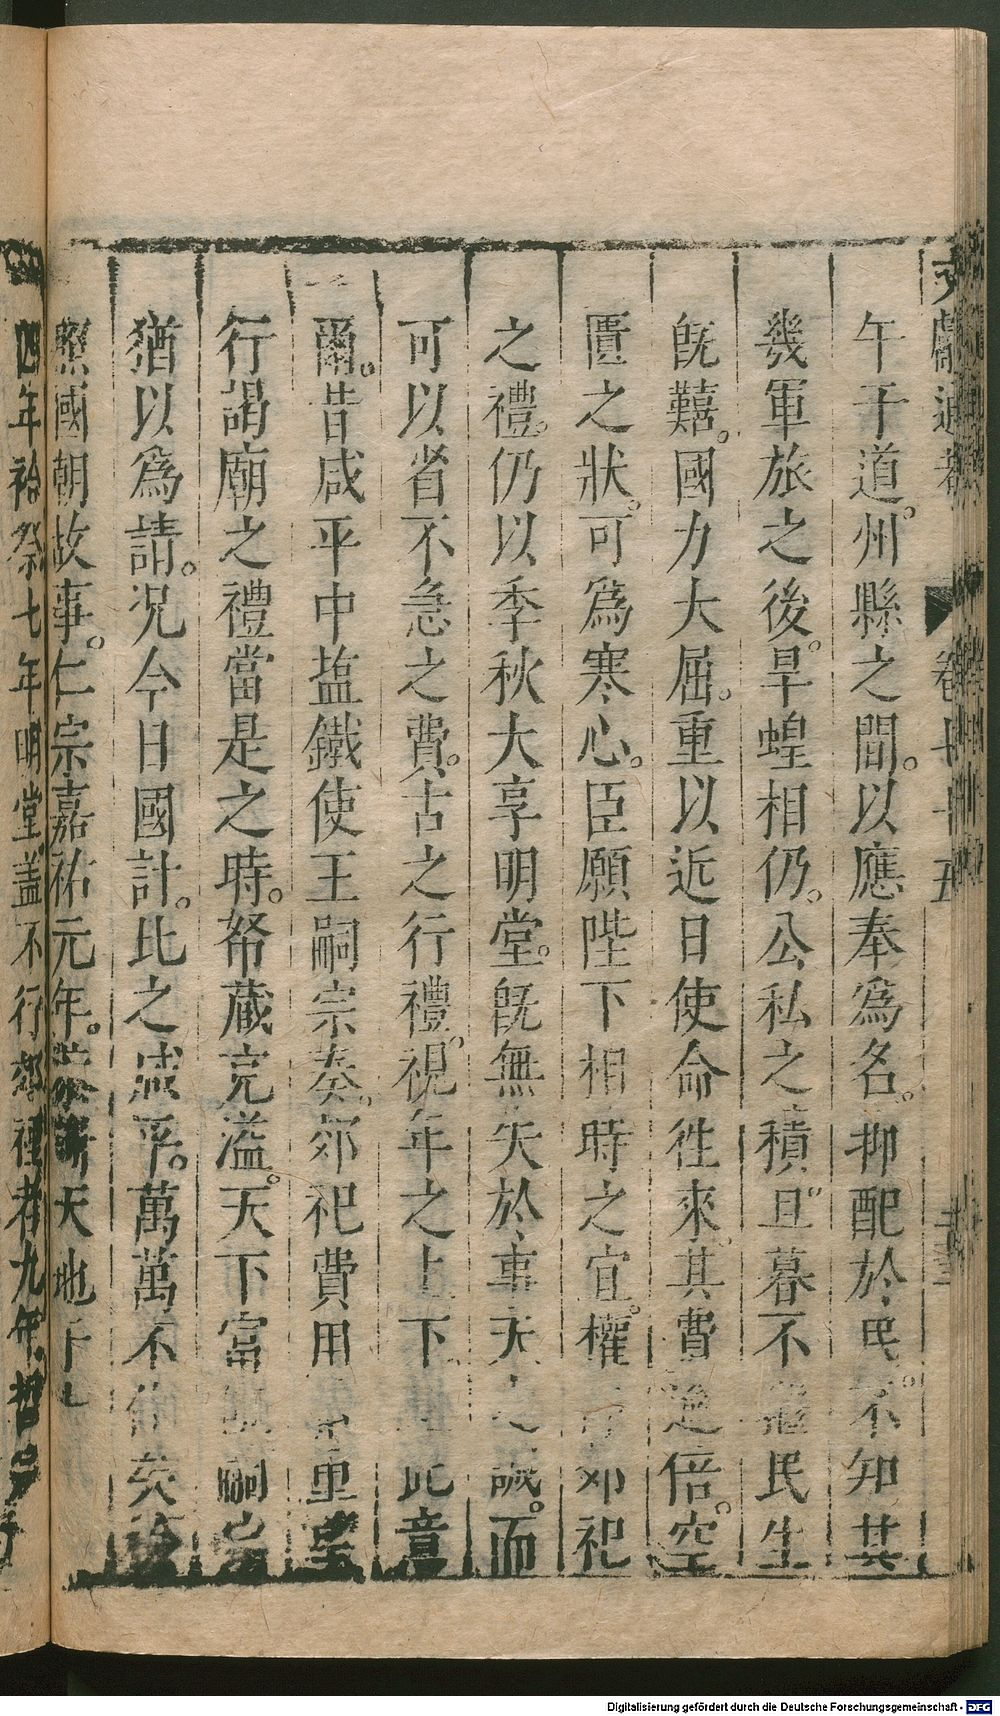 文獻通考 卷七十五
午于道州縣之間。以應奉爲名。抑配於民。不知其
幾軍旅之後。旱蝗相仍。公私之積。旦暮不繼民生
旣囏。國力大屈。重以近日使命徃來。其費逾倍。空
匱之狀。可爲寒心。臣願陛下相時之宜。權 郊祀
之禮。仍以季秋大享明堂。旣無失於事天之誠。而
可以省不急之費。古之行禮。視年之上下 此意
爾。昔咸平中塩鐵使王嗣宗奏。郊祀費用 重望
行謁廟之禮當是之時。帑藏充溢。天下富 嗣宗
猶以爲請。况今日國計。比之咸平。萬萬不侔矣
熙國朝故事。仁宗嘉祐元年。恭謝天地于
四年祫祭七年明堂盖不行郊禋者九年。哲宗
Digitalisierung gefördert durch die Deutsche Forschungsgemeinschaft - DFG